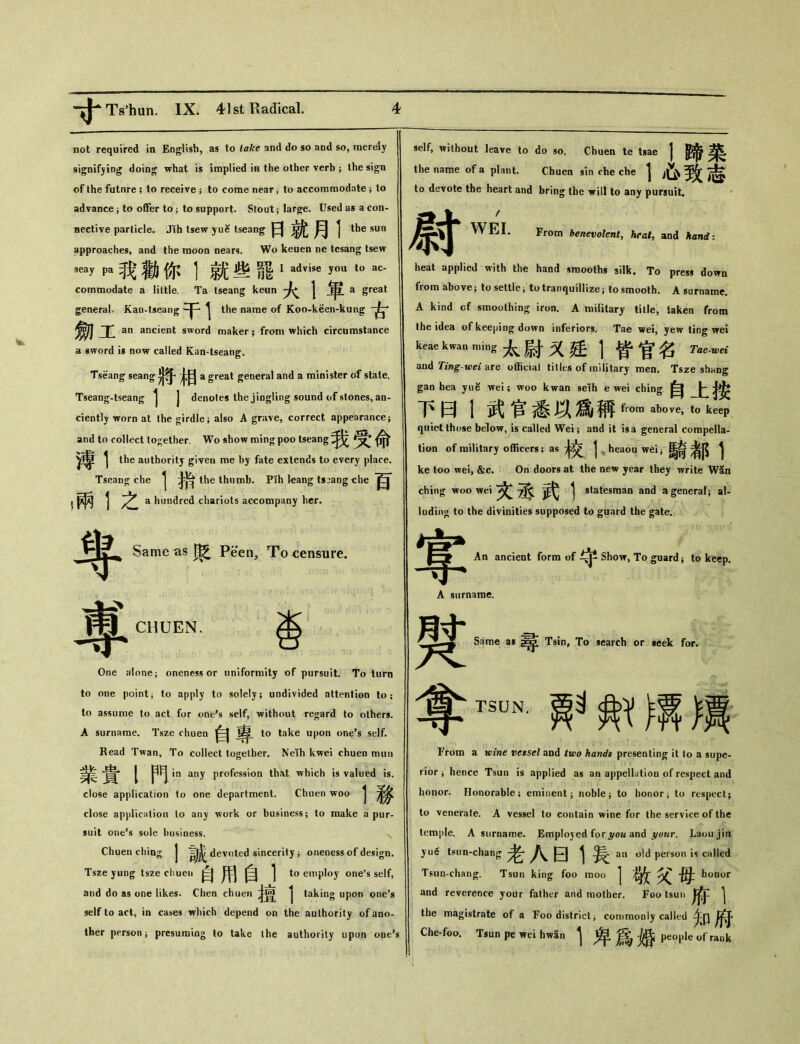 寸 Ts'hun. IX. 41st Radical. 4
not required in English, as to take and do so and so, merely
signifying doing what is implied in the other verb; the sign
of the future; to receive; to come near; to accommodate; to
advance; to offer to; to support. Stout; large. Used as a con-
nective particle. Jih tsew yuě tseang 日就月丨 the sun
approaches, and the moon nears. Wo keuen ne tesang tsew
seay pa 我勸你丨就些罷 I advise you to ac-
commodate a little. Ta tseang keun 大丨軍 a great
general. Kan-tseang 干丨 the name of Koo-këen-kung 古
劎工 an ancient sword maker; from which circumstance
a sword is now called Kan-tseang.
Tsëang seang 將相 a great general and a minister of state.
Tseang-tseang 丨丨 denotes the jingling sound of stones, an-
ciently worn at the girdle; also A grave, correct appearance;
and to collect together. Wo show ming poo tseang 我受命
溥丨 the authority given me by fate extends to every place.
Tseang che 丨指 the thumb. Pĭh leang tseang che 百
兩丨之 a hundred chariots accompany her.
Same as 貶 Pëen, To censure.
專 CHUEN.
One alone; oneness or uniformity of pursuit. To turn
to one point; to apply to solely; undivided attention to;
to assume to act for one's self, without regard to others.
A surname. Tsze chuen 自專 to take upon one's self.
Read Twan, To collect together. Neïh kwei chuen mun
業貴丨門 in any profession that which is valued is.
close application to one department. Chuen woo 丨務
close application to any work or business; to make a pur-
suit one's sole business.
Chuen ching 丨誠 devoted sincerity; oneness of design.
Tsze yung tsze chuen 自用自丨 to employ one's self,
and do as one likes. Chen chuen 擅丨 taking upon one's
self to act, in cases which depend on the authority of ano-
ther person; presuming to take the authority upon one's
self, without leave to do so. Chuen te tsae 丨蹄菜
the name of a plant. Chuen sin che che 丨心致志
to devote the heart and bring the will to any pursuit.
尉 WEI. From benevolent, heat, and hand:
heat applied with the hand smooths silk. To press down
from above; to settle; to tranquillize; to smooth. A surname.
A kind of smoothing iron. A military title, taken from
the idea of keeping down inferiors. Tae wei, yew ting wei
keae kwan ming 太尉又廷丨皆官名 Tac-wei
and Ting-wei are official titles of military men. Tsze shang
gan hea yuě wei; woo kwan seïh e wei ching 自上按
下曰丨武官悉以爲稱 from above, to keep
quiet those below, is called Wei; and it is a general compella-
tion of military officers; as 校丨, heaou wei; 騎都丨
ke too wei, &c. On doors at the new year they write Wăn
ching woo wei 文丞武丨 statesman and a general; al-
luding to the divinities supposed to guard the gate.
An ancient form of 守 Show, To guard; to keep.
A surname.
Same as 尋 Tsin, To search or seek for.
尊 TSUN.
From a wine vessel and two hands presenting it to a supe-
rior; hence Tsun is applied as an appellation of respect and
honor. Honorable; eminent; noble; to honor; to respect;
to venerate. A vessel to contain wine for the service of the
temple. A surname. Employed for you and your. Laou jin
yuě tsun-chang 老人曰丨長 an old person is called
Tsun-chang. Tsun king foo moo 丨敬父母 honour
and reverence your father and mother. Foo tsun 府丨
the magistrate of a Foo district; commonly called 知府
Che-foo. Tsun pe wei hwăn 丨卑爲婚 people of rank